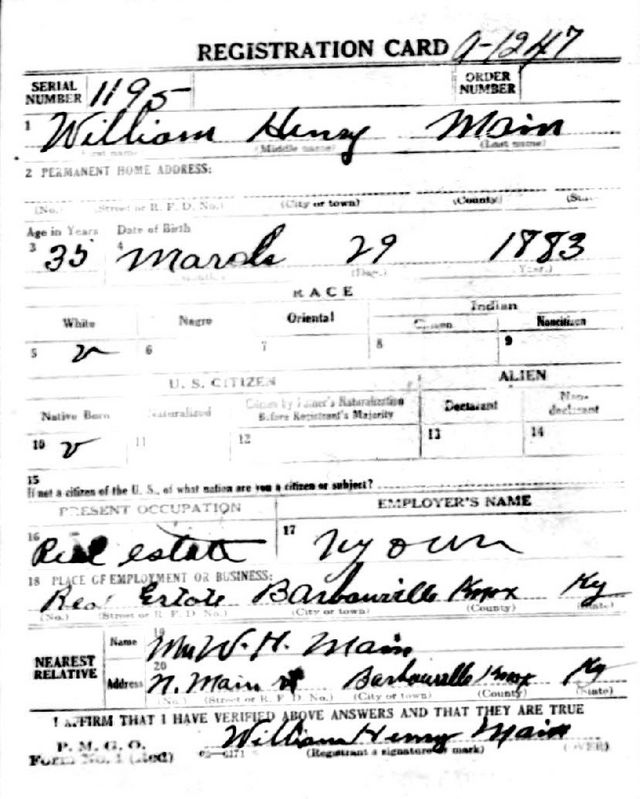 REGISTRATION CARD A-1247
SERIAL NUMBER 1195 ORDER NUMBER
1 William Henry Main
(First name) (Middle name) (Last name)
2 PERMANENT HOME ADDRESS:
(No.) (Street or R. F. D. No.) (City or town) (County) (State)
Age in Years Date of Birth
3 35 4 March 29 1883
(Month) (Day) (Year)
RACE
White Negro Oriental Indian
Citizen Noncitizen
5 v 6 7 8 9
U. S. CITIZEN ALIEN
Native Born Naturalized Citizen by Father's Naturalization Before Registrant's Majority Declarant Non-declarant
10 v 11 12 13 14
15
If not a citizen of the U. S., of what nation are you a citizen or subject?
PRESENT OCCUPATION EMPLOYER'S NAME
16 Real estate 17 My own
18 PLACE OF EMPLOYMENT OR BUSINESS:
Real Estate Barbourville Knox Ky
(No.) (Street or R. F. D. No.) (City or town) (County) (State)
NEAREST RELATIVE Name 19 W. H. Main
Address 20 N. Main st Barbourville Knox Ky
(No.) (Street or R. F. D. No.) (City or town) (County) (State)
I AFFIRM THAT I HAVE VERIFIED ABOVE ANSWERS AND THAT THEY ARE TRUE
P. M. G. O.
Form No. 1 (Red) William Henry Main
(Registrant's signature or mark) (OVER)